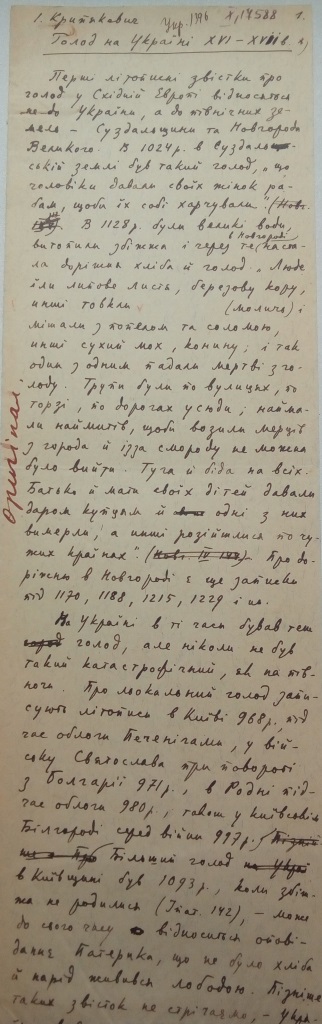 І. Крипякевич Укр. 1396 X, 17588 1.
Голод на Україні XVI – XVIII в.
Перші літописні звістки про
голод у Східній Европі відносяться
не до України, а до північних зе-
мель – Суздальщини та Новгорода
Великого. В 1024 р. в Суздаль-
ській землі був такий голод, „що
чоловіки давали своїх жінок ра-
бам, щоби їх собі харчували". (Нов.
В 1128 р. були великі води,
в Новгороді
витопили збіжжа і через те наста-
ла дорожня хліба й голод „Люде
їли липове листь, березову кору,
инші товкли (молич) і
мішали з попелом та соломою,
инші сухий мох, конину; і так
один з одним падали мертві з го-
лоду. Трупи були по вулицях, по
торзі, по дорогах усюди; найма-
ли наймитів, щоби возили мерців
з города й ізза смороду не можна
було вийти. Туга й біда на всіх.
Батько й мати своїх дітей давали
даром купцям й одні з них
вимерли, а инші розійшлися по чу-
жих країнах". (Новг. IV Про до-
ріжню в Новгороді є ще записки
під 1170, 1188, 1215, 1229 і ин.
На Україні в ті часи бував теж
голод, але ніколи не був
такий катастрофічний, як на пів-
ночи. Про льокальний голод запи-
сують літописи в Київі 968 р. під
час облоги Печенігами, у вій-
ську Святослава при повороті
з Болгарії 971 р., в Родні під-
час облоги 980 р., також у київськім
Білгороді серед війни 997 р. Пізній
ше Про Більший голод на Укра
в Київщині був 1093 р., коли збіж-
жа не родилися (Іпат. 142), – може
до сього часу відноситься опові-
даннє Патерика, що не було хліба
й нарід живився лободою. Пізніше
таких звісток не стрічаємо, – Укра-
оригінал